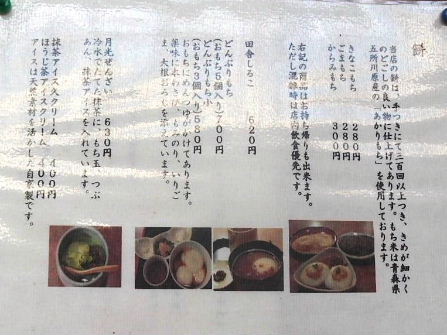 餅
当店の餅は、手つきにて二百回以上つき、きめが細かく
のどごしの良い物に仕上げてあります。もち米は青森県
五所川原産の「あかりもち」を使用しております。
きなこもち 280円
ごまもち 280円
からみもち 300円
右記の商品はお持ち帰りも出来ます。
ただし混雑時は店内飲食優先です。
田舎しるこ 620円
どんぶりもち
(おもち5個入り)700円
どんぶりもち小
(おもち3個入り)580円
おもちにめんつゆがかけてあります。
薬味に本わさび、もみのり、いりご
ま、大根おろしを添えています。
月光ぜんざい 630円
冷水でたてた抹茶に、もち玉、つぶ
あん、抹茶アイスを入れています。
抹茶アイスクリーム 400円
ほうじ茶アイスクリーム 400円
アイスは天然素材を活かした自家製です。